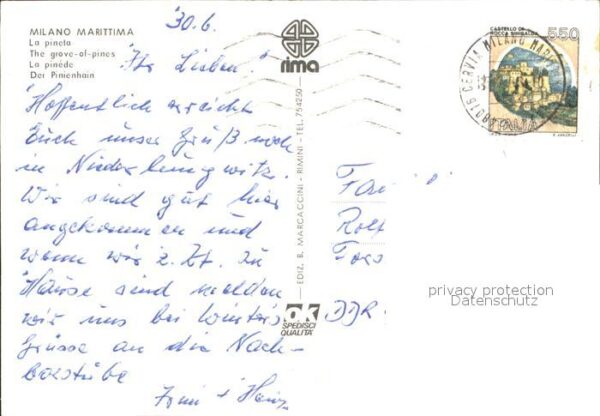 MILANO MARITTIMA
La pineta
The grove-of-pines
La pinède
Der Pinienhain
30.6.
Ihr Lieben!
Hoffentlich erreicht
Euch unser Gruß noch
in Niederlungwitz.
Wir sind gut hier
angekommen und
wenn wir z. Zt. zu
Hause sind melden
wir uns bei
Grüsse an die Nach-
barstube
rima
EDIZ. B. MARCACCINI - RIMINI - TEL. 754250
ok
SPEDISCI
QUALITÀ
CASTELLO DI
ROCCA SINIBALDA
550
ITALIA
48016 CERVIA MILANO MAR
Rolf
DDR
privacy protection
Datenschutz